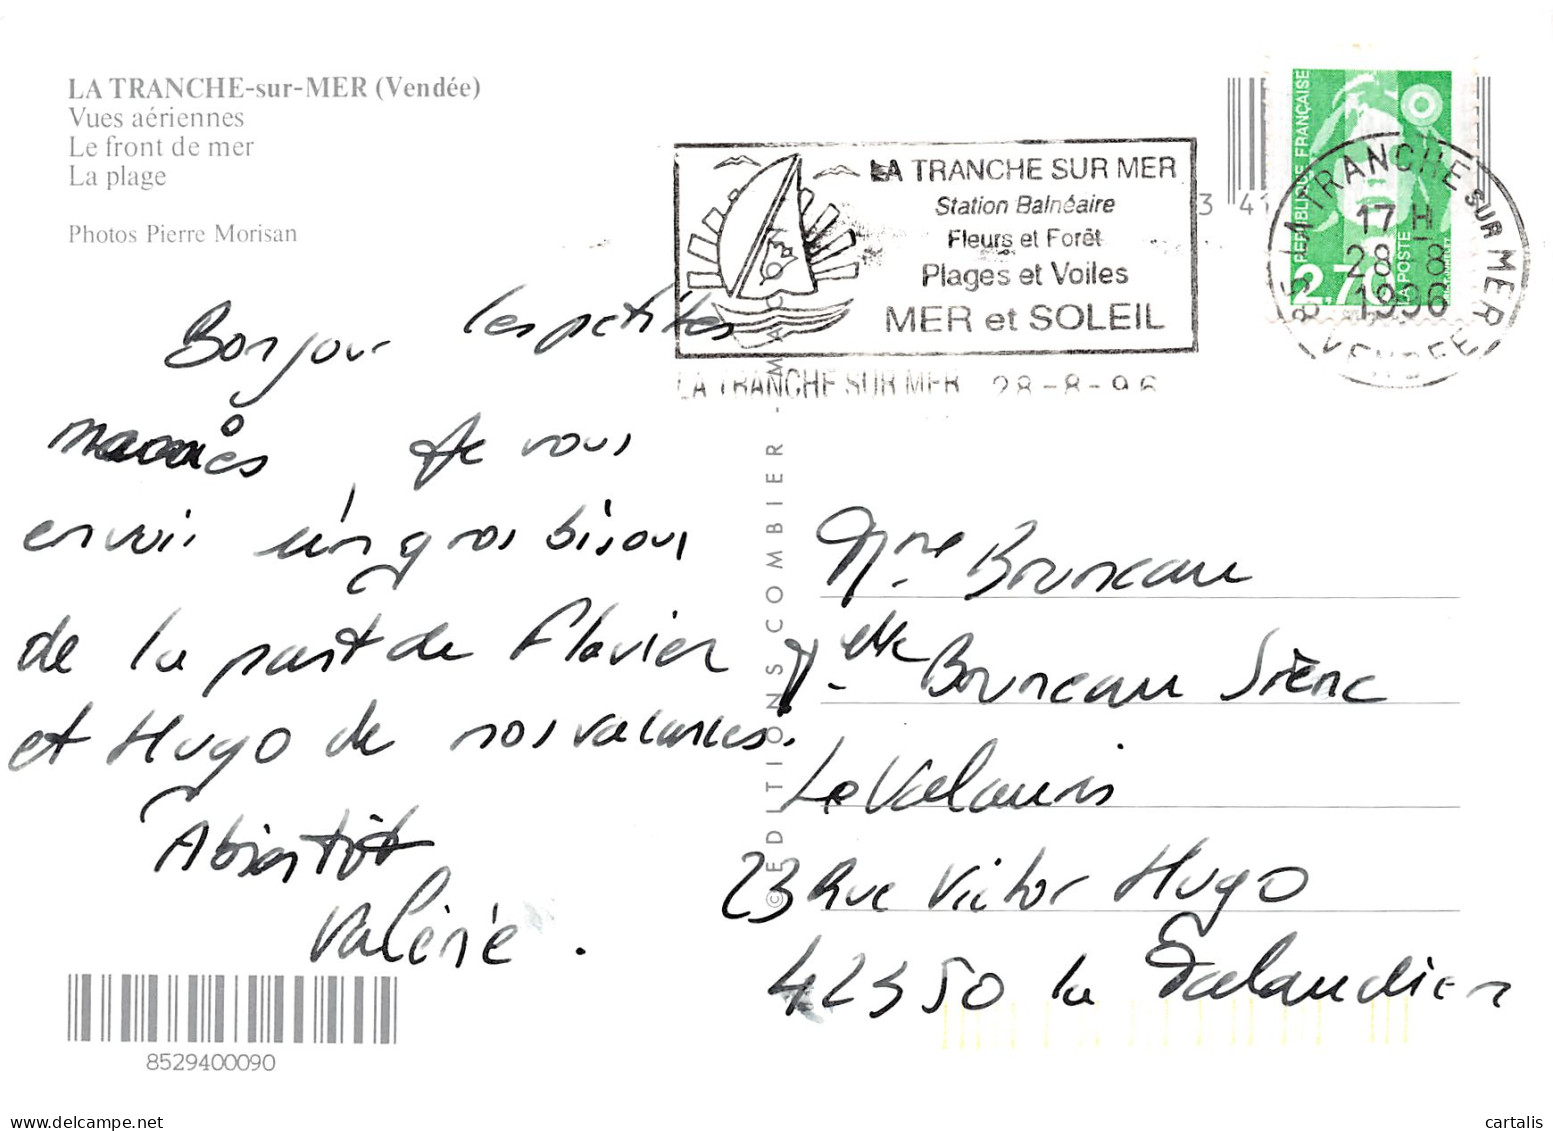 LA TRANCHE-sur-MER (Vendée)
Vues aériennes
Le front de mer
La plage
Photos Pierre Morisan
LA TRANCHE SUR MER
Station Balnéaire
Fleurs et Forêt
Plages et Voiles
MER et SOLEIL
LA TRANCHE SUR MER 28-8-96
RÉPUBLIQUE FRANÇAISE
2.70
LA POSTE
LA TRANCHE SUR MER
17 H
28-8
1996
85 VENDEE
3 41
Bonjour les petites
mamiès Je vous
envoi un gros bisous
de la part de Flavien
et Hugo de nos vacances.
A bientôt
Valérie.
© EDITIONS COMBIER - MACON
Mme Bruneau
Melle Bruneau Sièna
Le Valauris
23 Rue Victor Hugo
42350 la Talaudien
8529400090
www.delcampe.net
cartalis